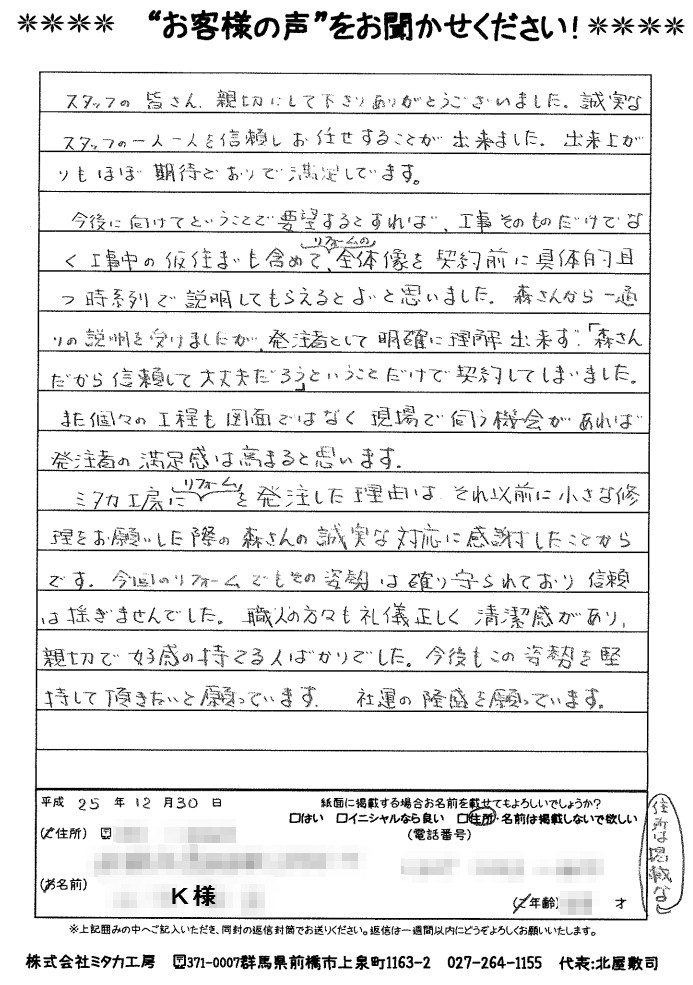 **** "お客様の声"をお聞かせください! ****
スタッフの皆さん、親切にして下さりありがとうございました。誠実な
スタッフの一人一人を信頼しお任せすることが出来ました。出来上が
りもほぼ期待どおりで満足しています。
今後に向けてということで要望するとすれば、工事そのものだけでな
リフォームの
く工事中の仮住まいも含めて、全体像を契約前に具体的且
つ時系列で説明してもらえるとよいと思いました。森さんから一通
りの説明を受けましたが、発注者として明確に理解出来ず、「森さん
だから信頼して大丈夫だろう」ということだけで契約してしまいました。
また個々の工程も図面ではなく現場で伺う機会があれば
発注者の満足感は高まると思います。
リフォーム
ミタカ工房にを発注した理由は、それ以前に小さな修
理をお願いした際の森さんの誠実な対応に感謝したことから
です。今回のリフォームでもその姿勢は確り守られており信頼
は揺ぎませんでした。職人の方々も礼儀正しく清潔感があり、
親切で好感の持てる人ばかりでした。今後もこの姿勢を堅
持して頂きたいと願っています。社運の隆盛を願っています。
平成 25 年 12 月 30 日
紙面に掲載する場合お名前を載せてもよろしいでしょうか?
□はい □イニシャルなら良い □住所・名前は掲載しないで欲しい
住所は掲載なし
(ご住所) 〒
(電話番号)
(お名前)
K様
(ご年齢) 才
※上記囲みの中へご記入いただき、同封の返信封筒でお送りください。返信は一週間以内にどうぞよろしくお願いいたします。
株式会社ミタカ工房 〒371-0007群馬県前橋市上泉町1163-2 027-264-1155 代表:北屋敷司